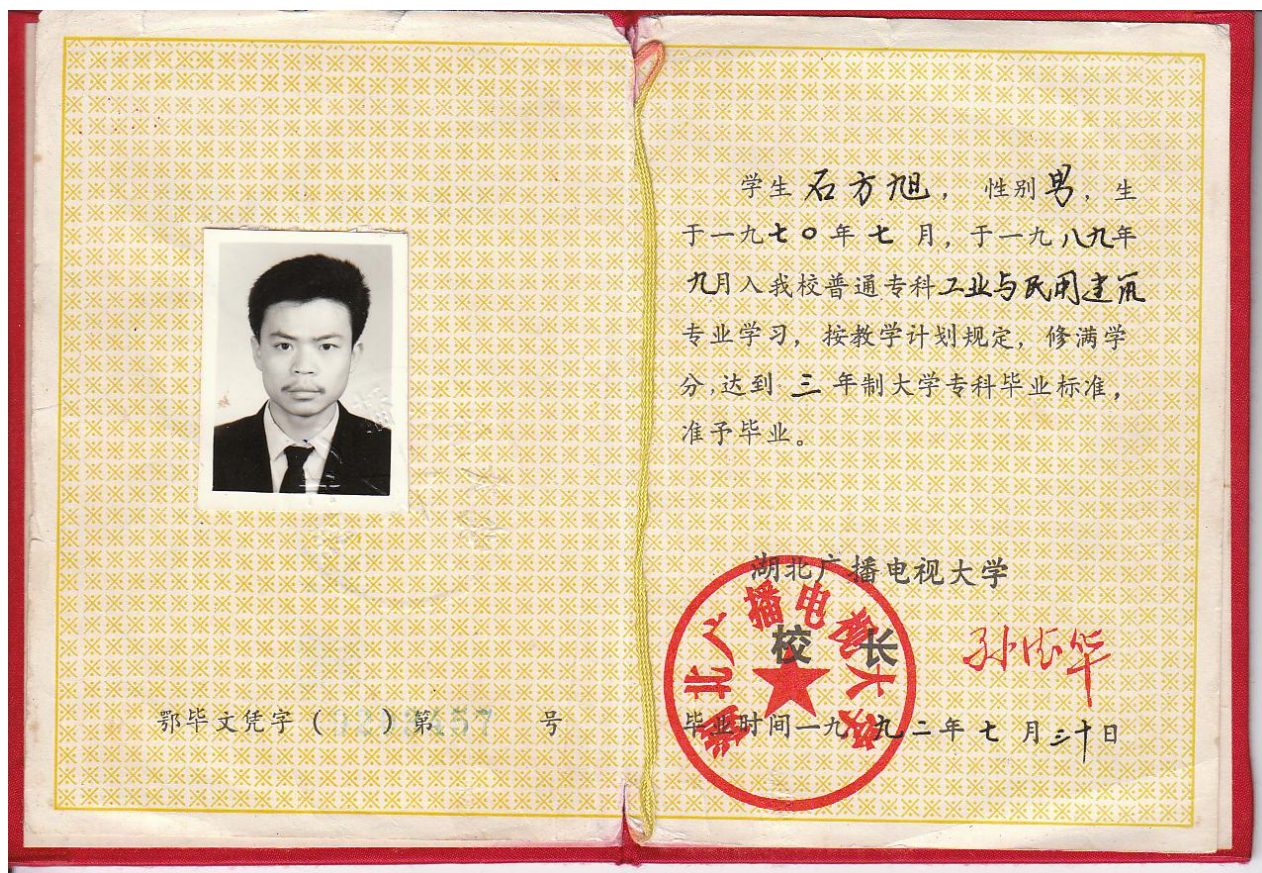 学生 石方旭，性别男，生
于一九七〇年七月，于一九八九年
九月入我校普通专科工业与民用建筑
专业学习，按教学计划规定，修满学
分，达到三年制大学专科毕业标准，
准予毕业。
湖北广播电视大学
校 长
湖北广播电视大学
毕业时间一九九二年七月三十日
鄂毕文凭字（）第 号